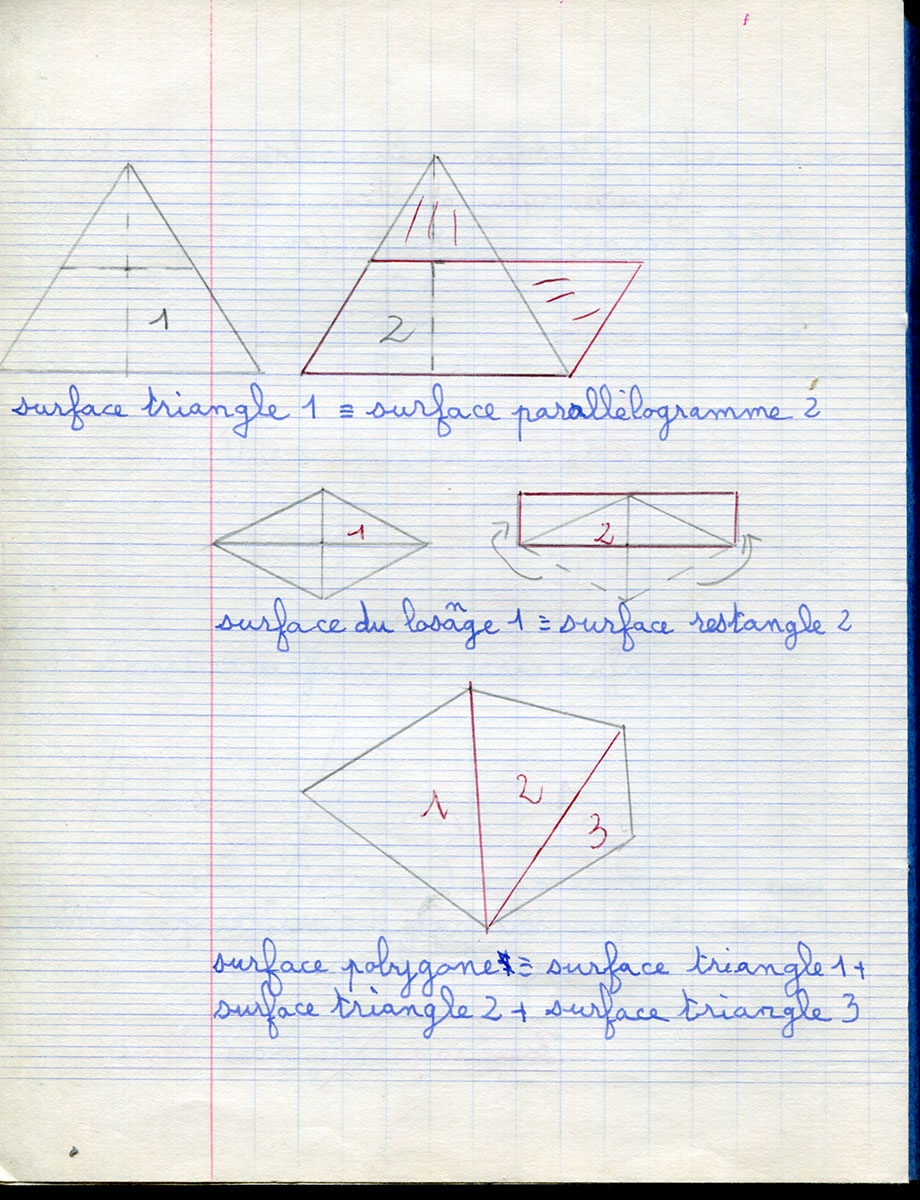 1
2
surface triangle 1 ≡ surface parallèlogramme 2
1
2
surface du losãge 1 ≡ surface restangle 2
1
2
3
surface polygone ≡ surface triangle 1 +
surface triangle 2 + surface triangle 3